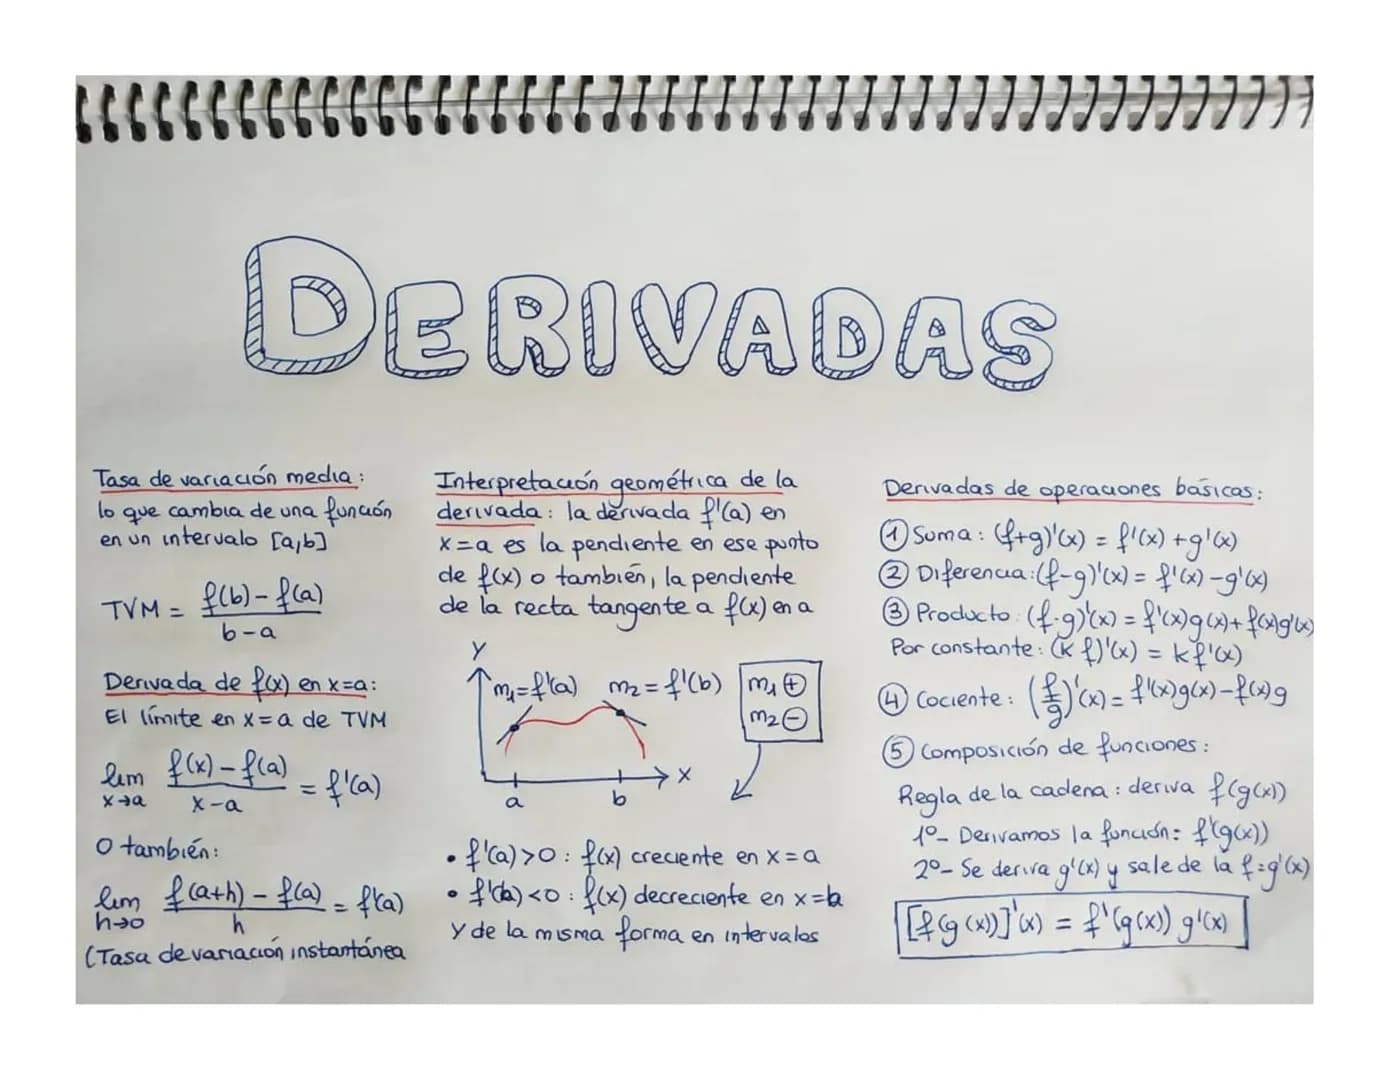 DERIVADAS
Tasa de variación media:
lo que cambia de una función
en un intervalo [a,b]
TVM = f(b) - f(a) / b-a
Derivada de f(x) en x=a:
El límite en x=a de TVM
lim x→a f(x) - f(a) / x-a = f'(a)
O también:
lim h→0 f(a+h) - f(a) / h = f'(a)
(Tasa de variación instantánea
Interpretación geométrica de la
derivada: la derivada f'(a) en
x=a es la pendiente en ese punto
de f(x) o también, la pendiente
de la recta tangente a f(x) en a
Y
m₁=f'(a) m₂=f'(b)
m₁ ⊕
m₂ ⊖
X
a b
• f'(a)>0: f(x) creciente en x=a
• f'(b)<0: f(x) decreciente en x=b
Y de la misma forma en intervalos
Derivadas de operaciones básicas:
① Suma: (f+g)'(x) = f'(x)+g'(x)
② Diferencia: (f-g)'(x) = f'(x)-g'(x)
③ Producto: (f·g)'(x) = f'(x)g(x)+f(x)g'(x)
Por constante: (k f)'(x) = k f'(x)
④ Cociente: (f/g)'(x) = f'(x)g(x)-f(x)g
⑤ Composición de funciones:
Regla de la cadena: deriva f(g(x))
1º- Derivamos la función: f'(g(x))
2º- Se deriva g'(x) y sale de la f: g'(x)
[f(g(x))]'(x) = f'(g(x)) g'(x)